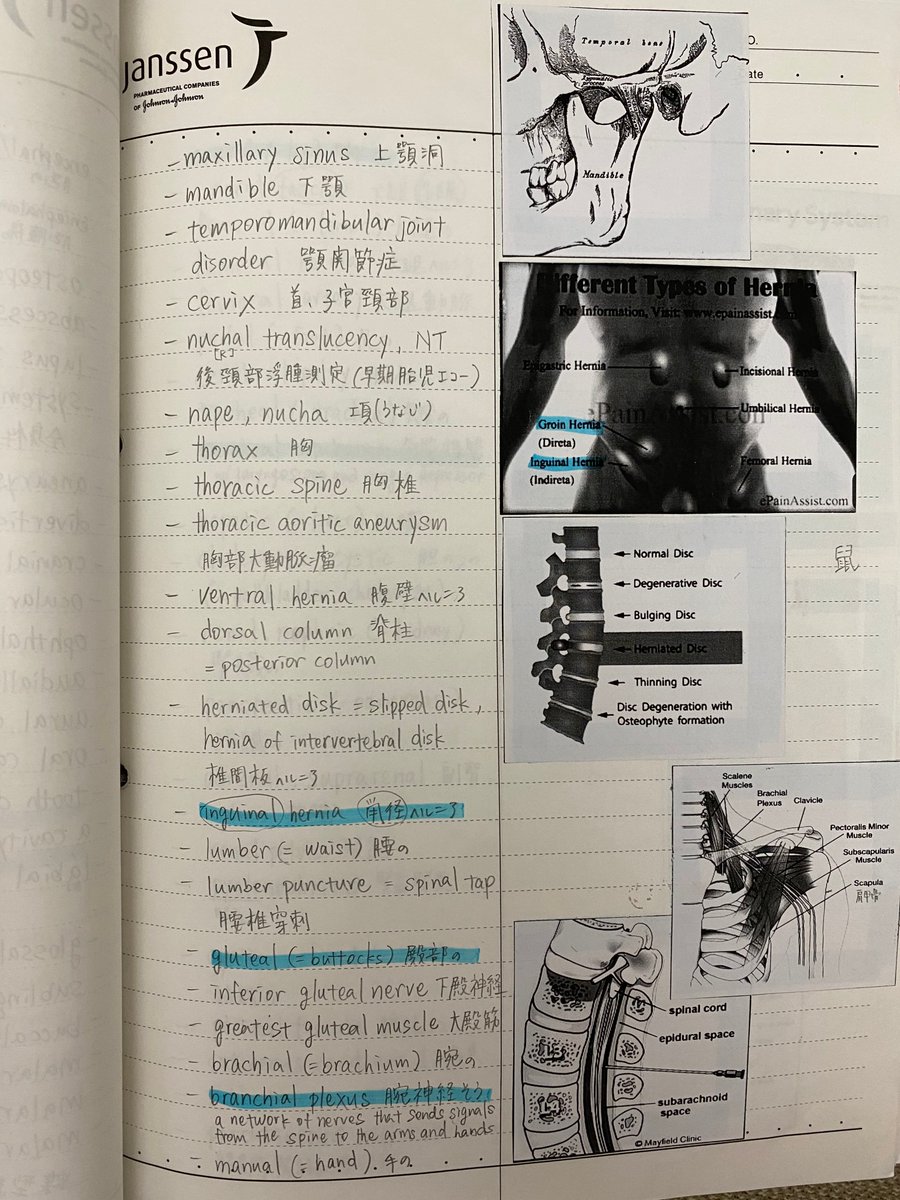 Janssen
PHARMACEUTICAL COMPANIES
OF Johnson & Johnson
- maxillary sinus 上顎洞
- mandible 下顎
- temporomandibular joint
disorder 顎関節症
- cervix 首、子宮頸部
- nuchal translucency, NT
後頸部浮腫測定(早期胎児エコー)
- nape, nucha 項(うなじ)
- thorax 胸
- thoracic spine 胸椎
- thoracic aoritic aneurysm
胸部大動脈瘤
- ventral hernia 腹壁ヘルニア
- dorsal column 脊柱
= posterior column
- herniated disk = slipped disk,
hernia of intervertebral disk
椎間板ヘルニア
- inguinal hernia 鼠径ヘルニア
- lumber (= waist) 腰の
- lumber puncture = spinal tap
腰椎穿刺
- gluteal (= buttocks) 殿部の
- inferior gluteal nerve 下殿神経
- greatest gluteal muscle 大殿筋
- brachial (= brachium) 腕の
- branchial plexus 腕神経そう
a network of nerves that sends signals
from the spine to the arms and hands
- manual (= hand). 手の
O.
ate
Temporal bone
Zygomatic
process
Mandible
Different Types of Hernia
For Information, Visit: www.epainassist.com
Epigastric Hernia
Incisional Hernia
Umbilical Hernia
ePainAssist.com
Groin Hernia
(Direta)
Inguinal Hernia
(Indireta)
Femoral Hernia
ePainAssist.com
Normal Disc
Degenerative Disc
Bulging Disc
Herniated Disc
Thinning Disc
Disc Degeneration with
Osteophyte formation
鼠
Scalene
Muscles
Brachial
Plexus
Clavicle
Pectoralis Minor
Muscle
Subscapularis
Muscle
Scapula
肩甲骨
spinal cord
epidural space
subarachnoid
space
© Mayfield Clinic